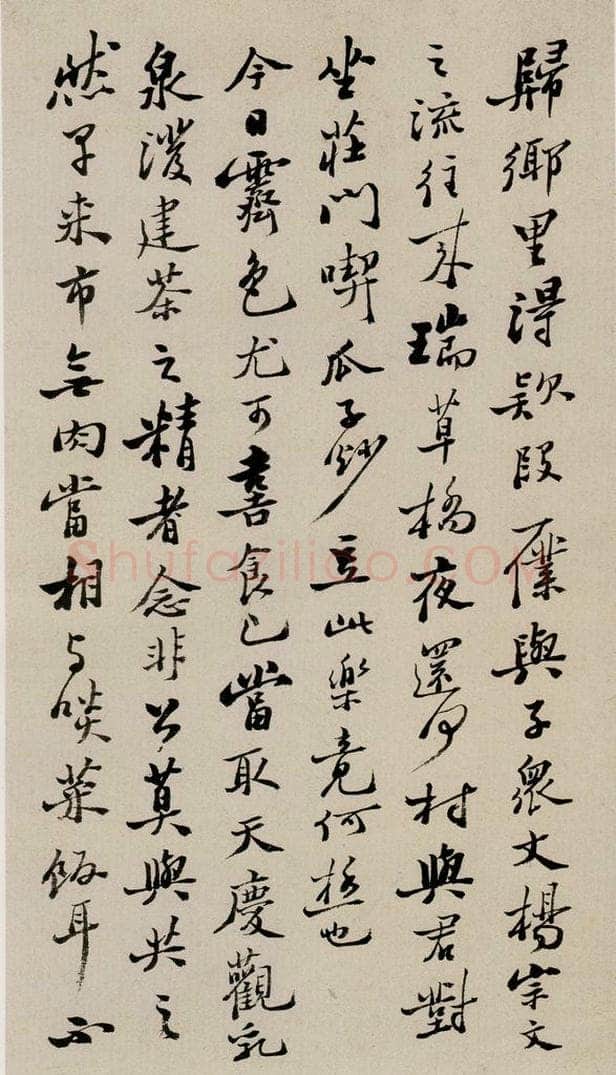 歸鄉里得欵段一僕與子衆丈楊宗文
之流往來瑞草橋夜還何村與君對
坐莊門喫瓜子炒豆此樂竟何極也
今日霽色尤可喜食已當取天慶觀乳
泉潑建茶之精者念非公莫與共之
然早来市無肉當相与啖菜飯耳不
Shufaziliao.COM